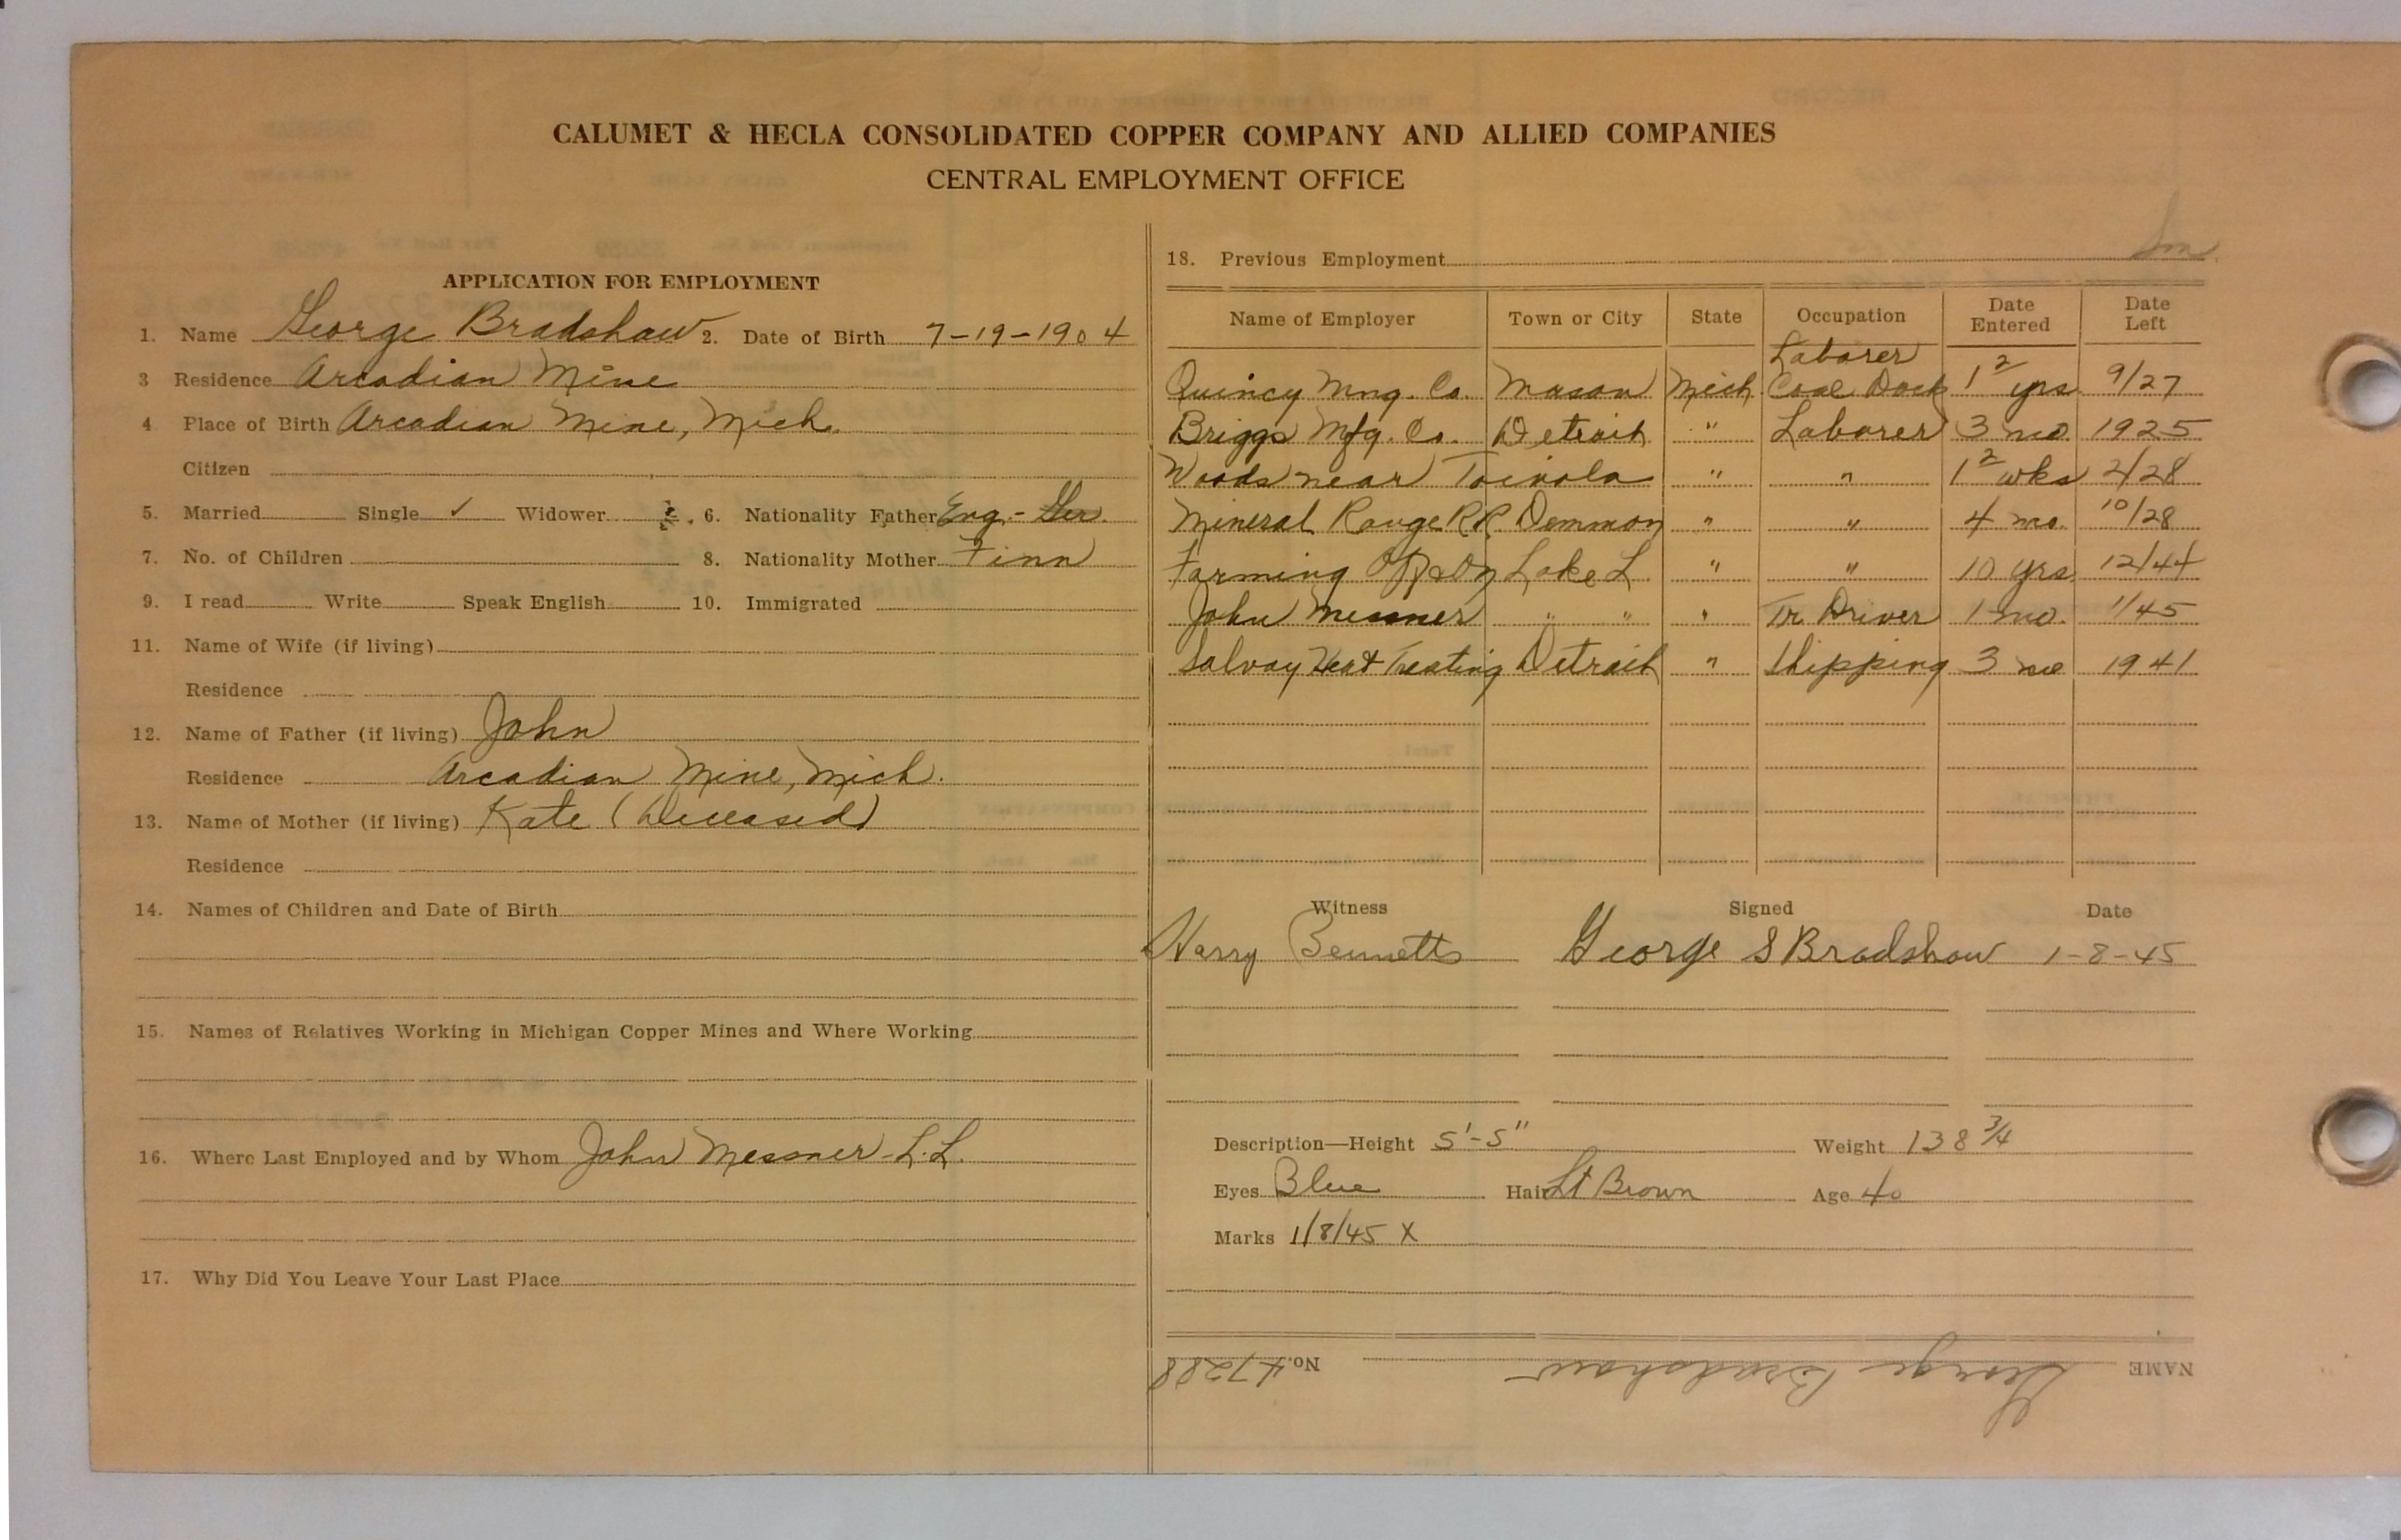 CALUMET & HECLA CONSOLIDATED COPPER COMPANY AND ALLIED COMPANIES
CENTRAL EMPLOYMENT OFFICE
APPLICATION FOR EMPLOYMENT
1. Name George Bradshaw 2. Date of Birth 7-19-1904
3 Residence Arcadian Mine
4 Place of Birth Arcadian Mine, Mich.
Citizen
5. Married Single ✓ Widower 6. Nationality Father Eng.-Ger.
7. No. of Children 8. Nationality Mother Finn
9. I read Write Speak English 10. Immigrated
11. Name of Wife (if living)
Residence
12. Name of Father (if living) John
Residence Arcadian Mine, Mich.
13. Name of Mother (if living) Kate (Deceased)
Residence
14. Names of Children and Date of Birth
15. Names of Relatives Working in Michigan Copper Mines and Where Working
16. Where Last Employed and by Whom John Messner-L.L.
17. Why Did You Leave Your Last Place
18. Previous Employment
Name of Employer Town or City State Occupation Date Entered Date Left
Laborer
Quincy Mng. Co. Mason Mich. Coal Dock 1 2 yrs 9/27
Briggs Mfg. Co. Detroit " Laborer 3 mo 1925
Woods near Toivola " " 1 2 wks 2/28
Mineral Range RR. Demmon " " 4 mo. 10/28
Farming Lake L " " 10 yrs 12/44
John Messner " " " Tr. Driver 1 mo. 1/45
Solvay Heat Treating Detroit " Shipping 3 mo 1941
Witness Signed Date
Harry Bennetts George S Bradshaw 1-8-45
Description—Height 5'-5" Weight 138 3/4
Eyes Blue Hair Lt Brown Age 40
Marks 1/8/45 X
NAME George Bradshaw No. 47288